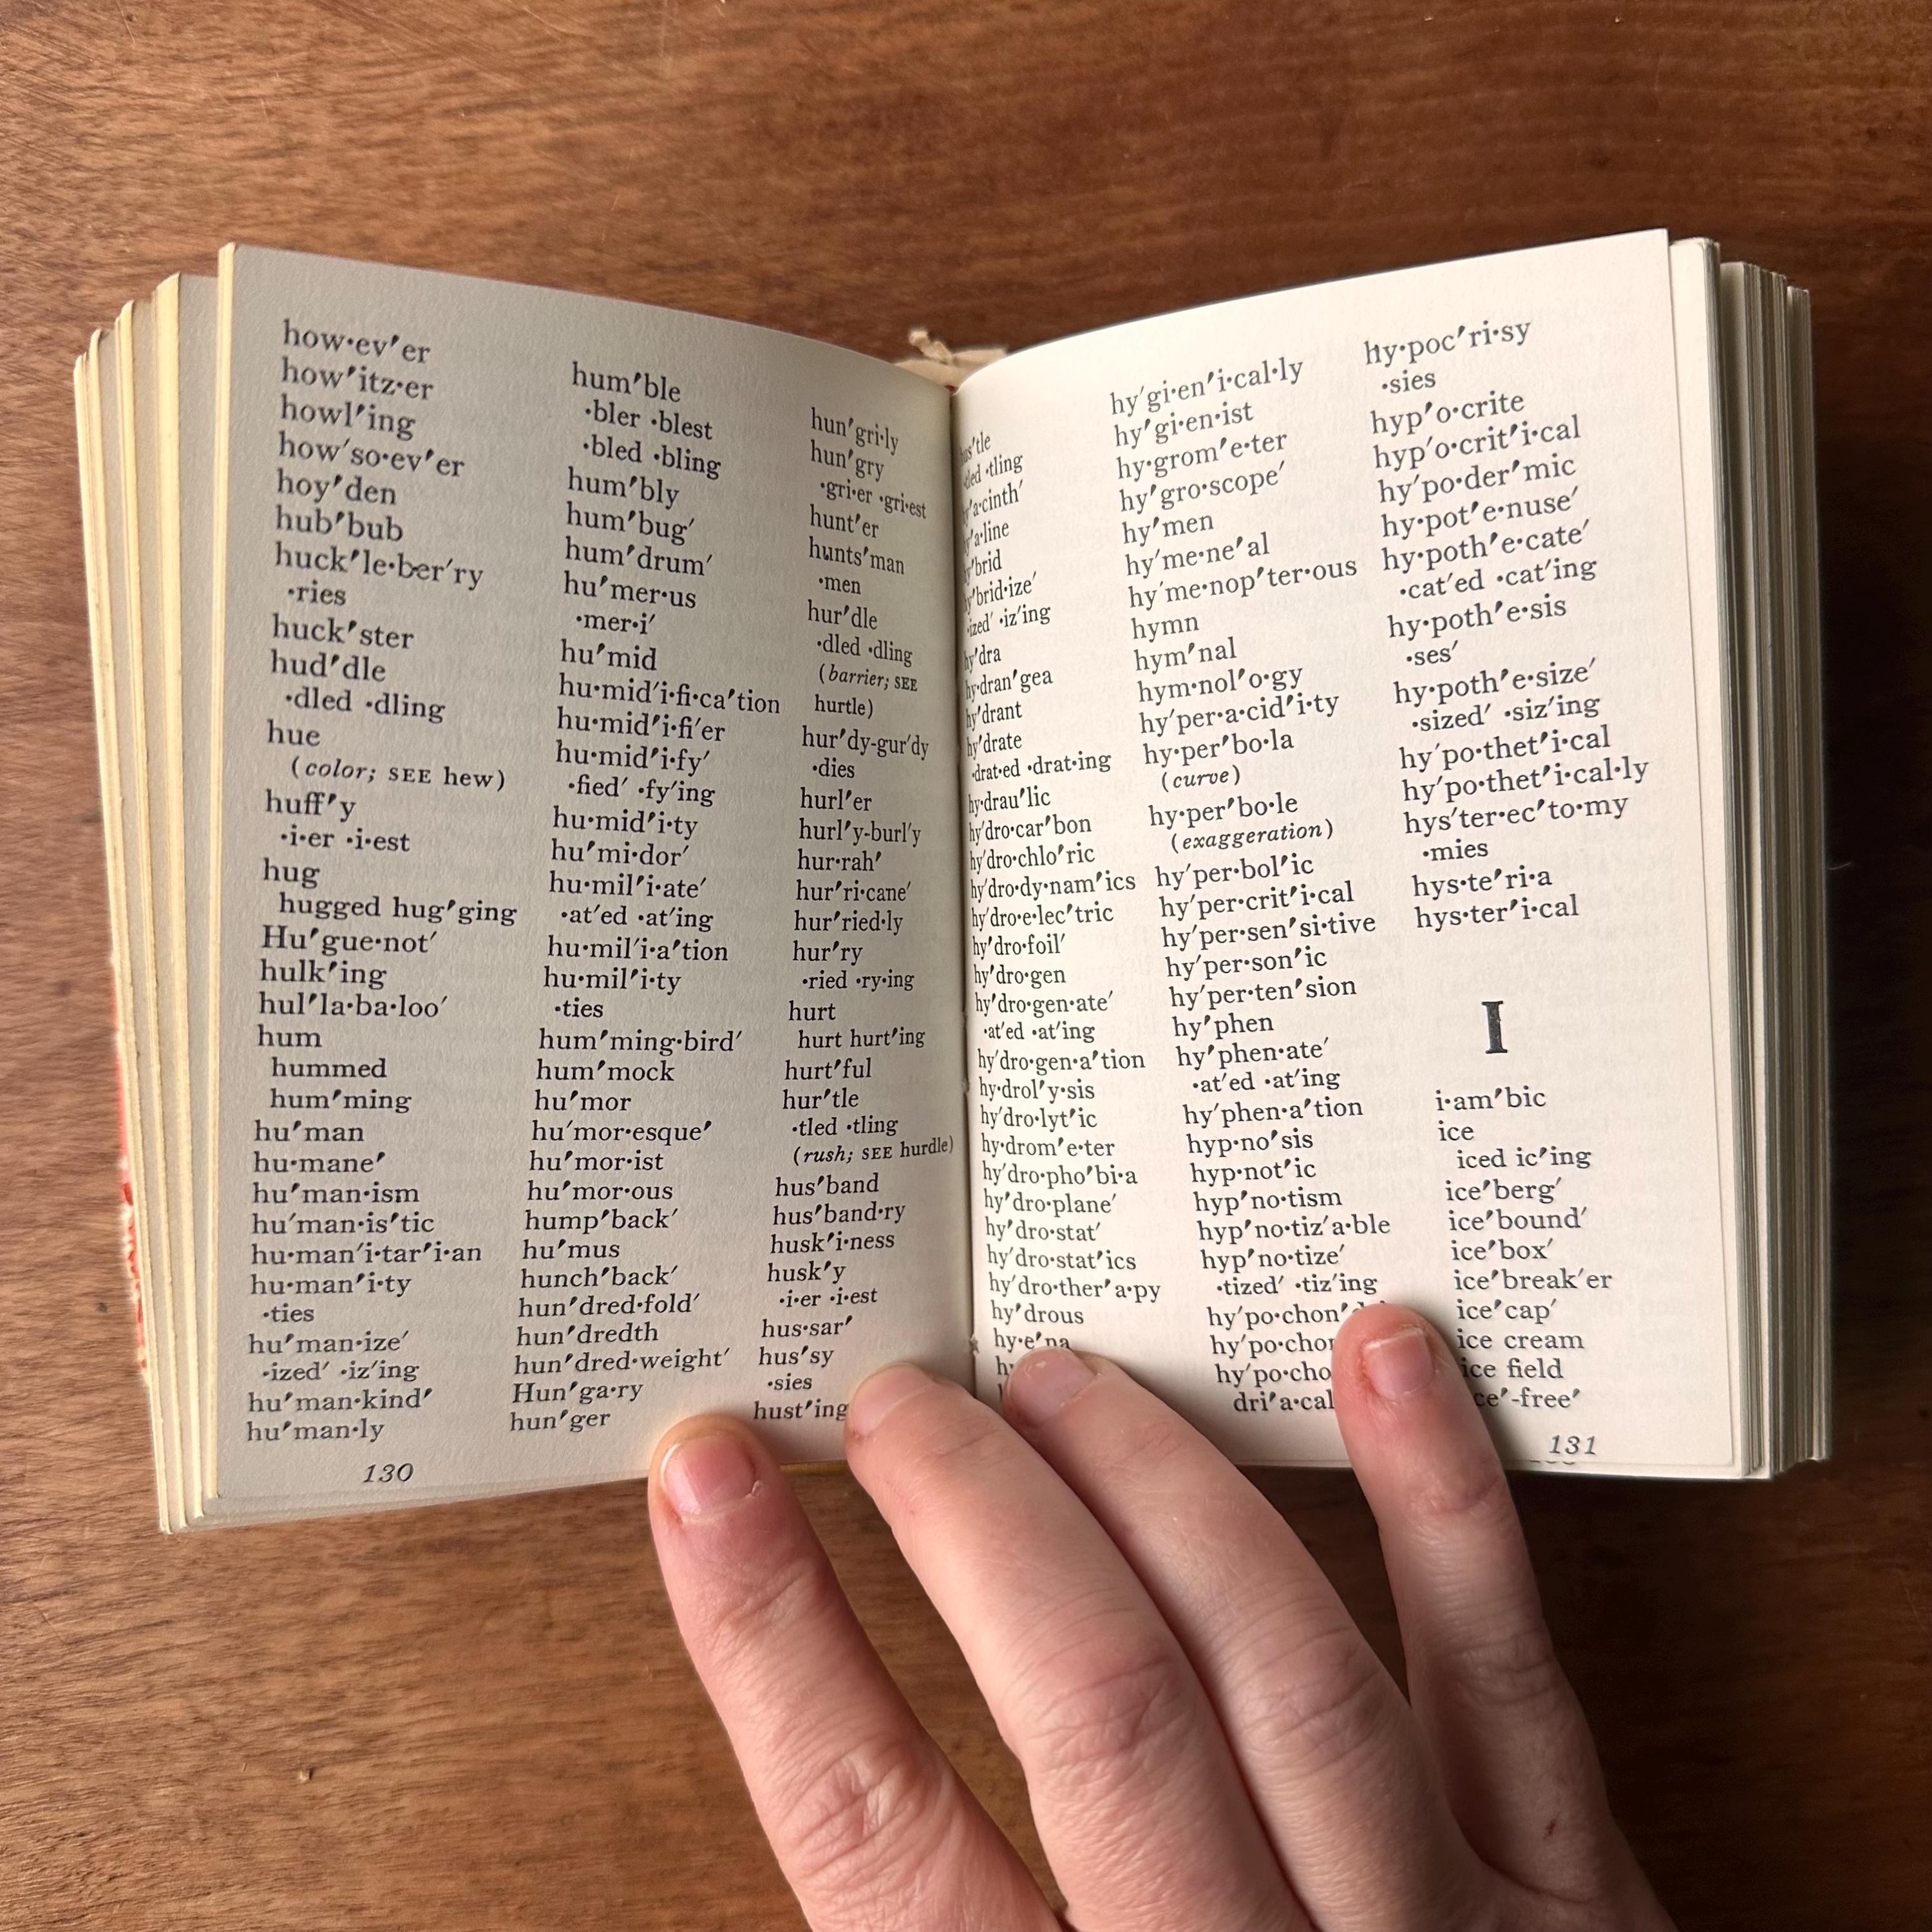 how·ev′er
how′itz·er
howl′ing
how′so·ev′er
hoy′den
hub′bub
huck′le·ber′ry
·ries
huck′ster
hud′dle
·dled ·dling
hue
(color; SEE hew)
huff′y
·i·er ·i·est
hug
hugged hug′ging
Hu′gue·not′
hulk′ing
hul′la·ba·loo′
hum
hummed
hum′ming
hu′man
hu·mane′
hu′man·ism
hu′man·is′tic
hu·man′i·tar′i·an
hu·man′i·ty
·ties
hu′man·ize′
·ized′ ·iz′ing
hu′man·kind′
hu′man·ly
130
hum′ble
·bler ·blest
·bled ·bling
hum′bly
hum′bug′
hum′drum′
hu′mer·us
·mer·i′
hu′mid
hu·mid′i·fi·ca′tion
hu·mid′i·fi′er
hu·mid′i·fy′
·fied′ ·fy′ing
hu·mid′i·ty
hu′mi·dor′
hu·mil′i·ate′
·at′ed ·at′ing
hu·mil′i·a′tion
hu·mil′i·ty
·ties
hum′ming·bird′
hum′mock
hu′mor
hu′mor·esque′
hu′mor·ist
hu′mor·ous
hump′back′
hu′mus
hunch′back′
hun′dred·fold′
hun′dredth
hun′dred·weight′
Hun′ga·ry
hun′ger
hun′gri·ly
hun′gry
·gri·er ·gri·est
hunt′er
hunts′man
·men
hur′dle
·dled ·dling
(barrier; SEE
hurtle)
hur′dy-gur′dy
·dies
hurl′er
hurl′y-burl′y
hur·rah′
hur′ri·cane′
hur′ried·ly
hur′ry
·ried ·ry·ing
hurt
hurt hurt′ing
hurt′ful
hur′tle
·tled ·tling
(rush; SEE hurdle)
hus′band
hus′band·ry
husk′i·ness
husk′y
·i·er ·i·est
hus·sar′
hus′sy
·sies
hust′ing
·tling
hy′dran′gea
hy′drant
hy′drate
·drat·ed ·drat·ing
hy·drau′lic
hy′dro·car′bon
hy′dro·chlo′ric
hy′dro·dy·nam′ics
hy′dro·e·lec′tric
hy′dro·foil′
hy′dro·gen
hy′dro·gen·ate′
·at′ed ·at′ing
hy′dro·gen·a′tion
hy·drol′y·sis
hy′dro·lyt′ic
hy·drom′e·ter
hy′dro·pho′bi·a
hy′dro·plane′
hy′dro·stat′
hy′dro·stat′ics
hy′dro·ther′a·py
hy′drous
hy·e′na
hy′gi·en′i·cal·ly
hy′gi·en·ist
hy·grom′e·ter
hy′gro·scope′
hy′men
hy′me·ne′al
hy′me·nop′ter·ous
hymn
hym′nal
hym·nol′o·gy
hy′per·a·cid′i·ty
hy·per′bo·la
(curve)
hy·per′bo·le
(exaggeration)
hy′per·bol′ic
hy′per·crit′i·cal
hy′per·sen′si·tive
hy′per·son′ic
hy′per·ten′sion
hy′phen
hy′phen·ate′
·at′ed ·at′ing
hy′phen·a′tion
hyp·no′sis
hyp·not′ic
hyp′no·tism
hyp′no·tiz′a·ble
hyp′no·tize′
·tized′ ·tiz′ing
hy′po·chon′
hy′po·chon
hy′po·cho
dri′a·cal
hy·poc′ri·sy
·sies
hyp′o·crite
hyp′o·crit′i·cal
hy′po·der′mic
hy·pot′e·nuse′
hy·poth′e·cate′
·cat′ed ·cat′ing
hy·poth′e·sis
·ses′
hy·poth′e·size′
·sized′ ·siz′ing
hy′po·thet′i·cal
hy′po·thet′i·cal·ly
hys′ter·ec′to·my
·mies
hys·te′ri·a
hys·ter′i·cal
I
i·am′bic
ice
iced ic′ing
ice′berg′
ice′bound′
ice′box′
ice′break′er
ice′cap′
ice cream
ice field
ice′-free′
131